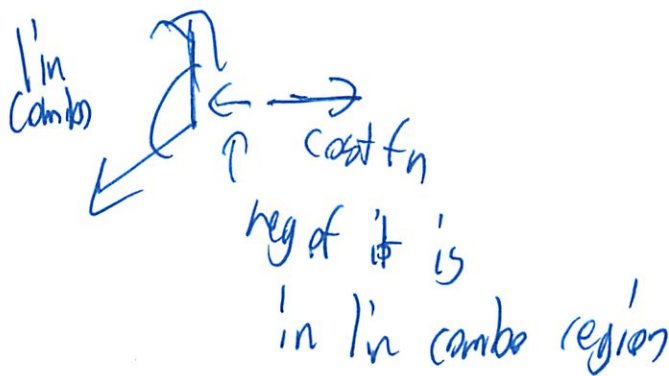 lin
combos
cost fn
neg of it is
in lin combo region